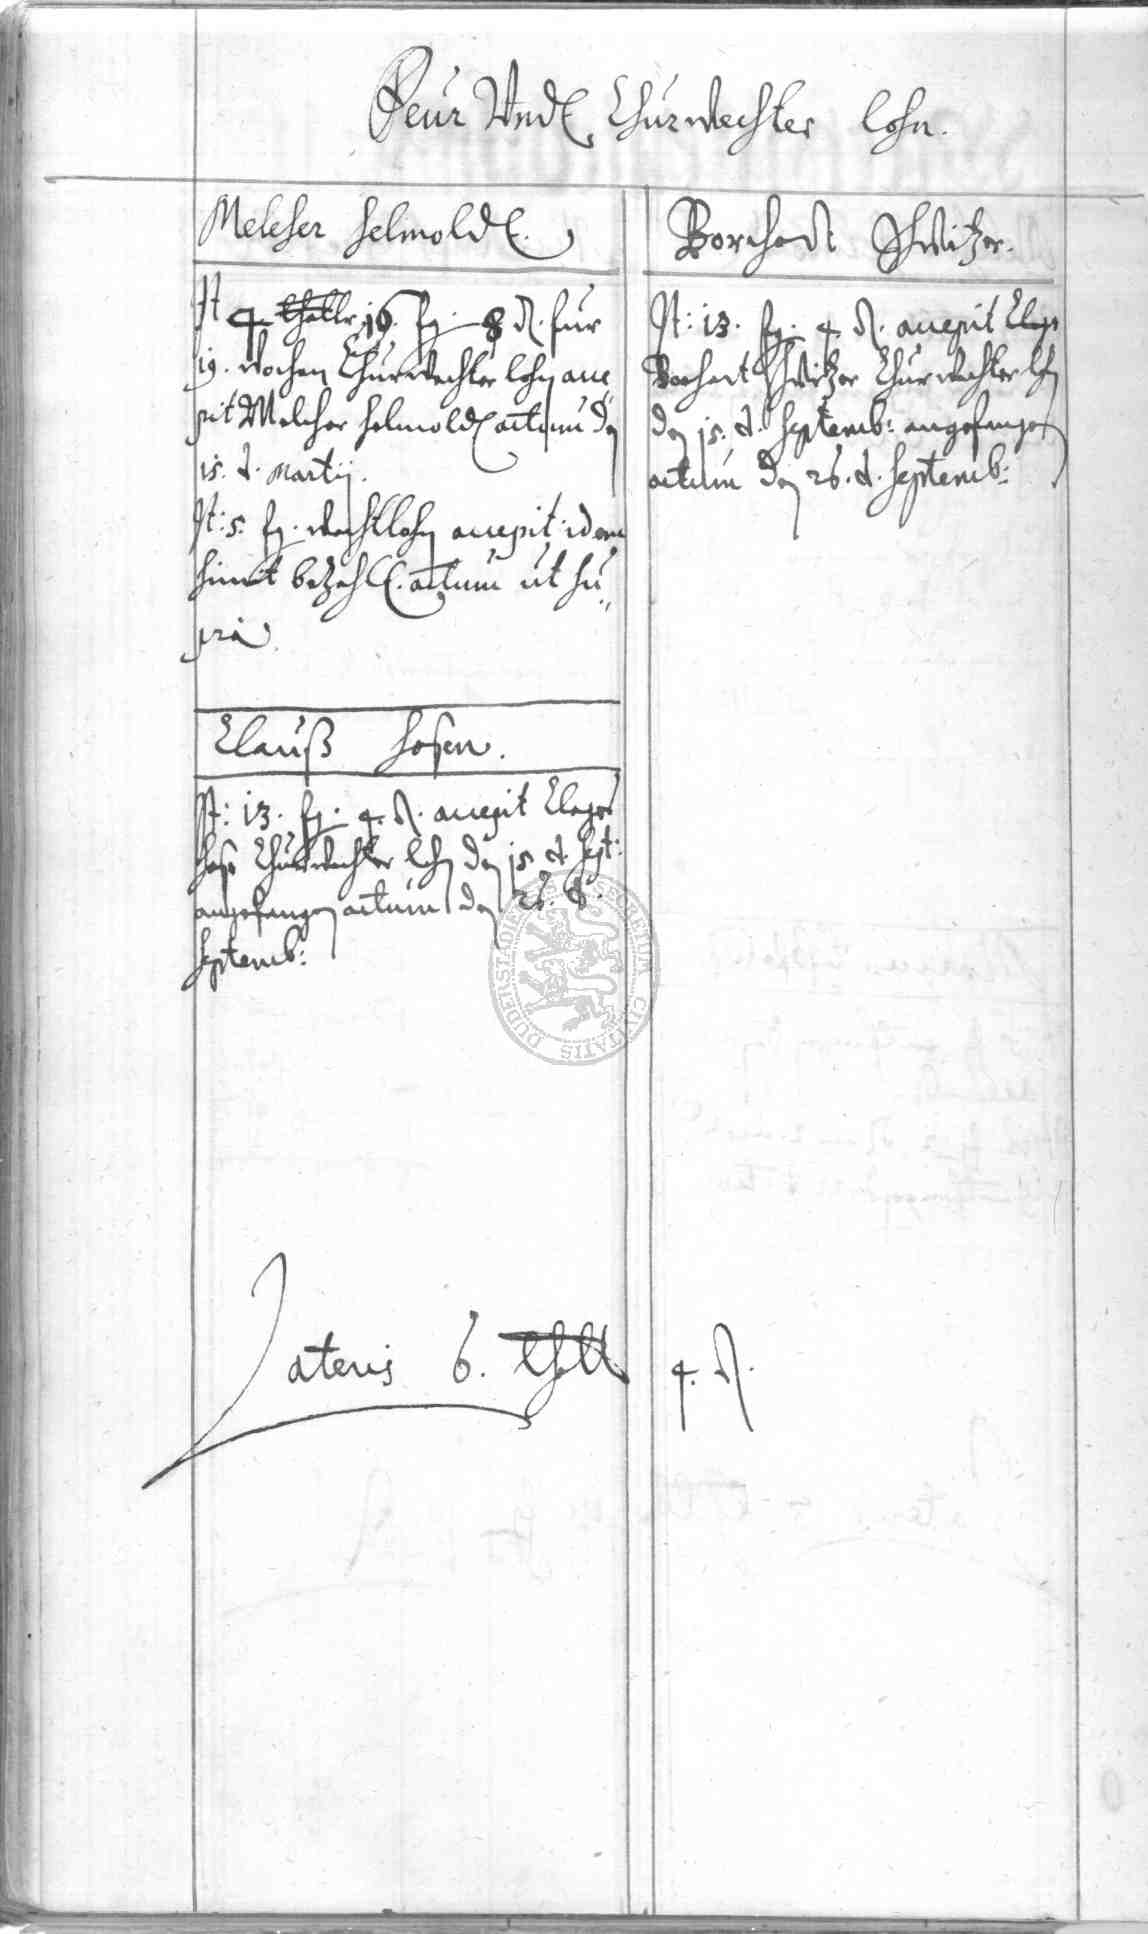 Feur Vnd Thurwechter lohn.
Melcher Helmold.
It 4 thallr 19. fg. 8 d. fur
19. wochen Thurwechter lohn acce,,
pit Melcher Helmold actum den
15. d. Martij.
It: 5. fg. wachtlohn accepit idem
himit bezahl. actum ut su,,
pra.
Clauß Hosen.
It: 13. fg. 4. d. accepit Clages
Hose Thurwechter lohn den 15. d. Sept:
angefangen actum den 26. d.
Septemb:
Borchart Schwitzer.
It: 13. fg. 4. d. accepit
Borchart Schwitzer Thurwechter lohn
den 15. d. Septemb: angefangen
actum den 26. d. Septemb:
Lateris 6. thall 4. d.
SECRETUM CIVITATIS DUDERSTADIENSIS